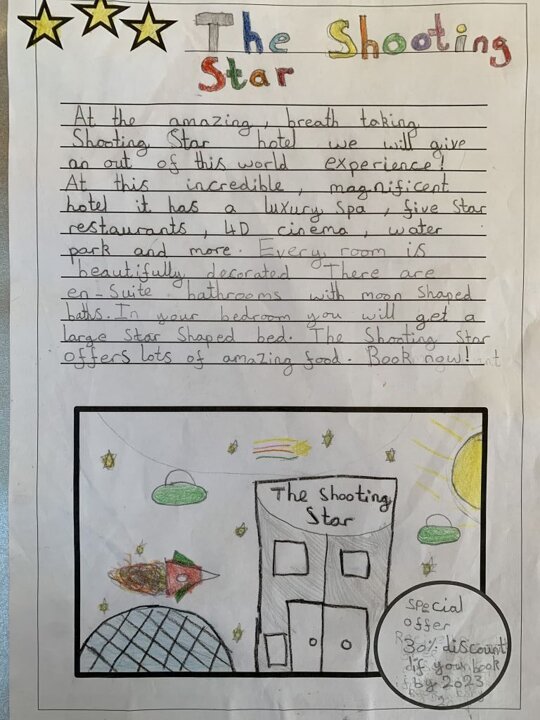 The Shooting
Star
At the amazing, breath taking
Shooting Star hotel we will give
an out of this world experience!
At this incredible, magnificent
hotel it has a luxury spa, five star
restaurants, 4D cinema, water
park and more. Every room is
beautifully decorated There are
en-suite bathrooms with moon shaped
baths. In your bedroom you will get a
large star shaped bed. The Shooting Star
offers lots of amazing food. Book now!
The Shooting
Star
special
offer
30% discount
if you book
by 2023